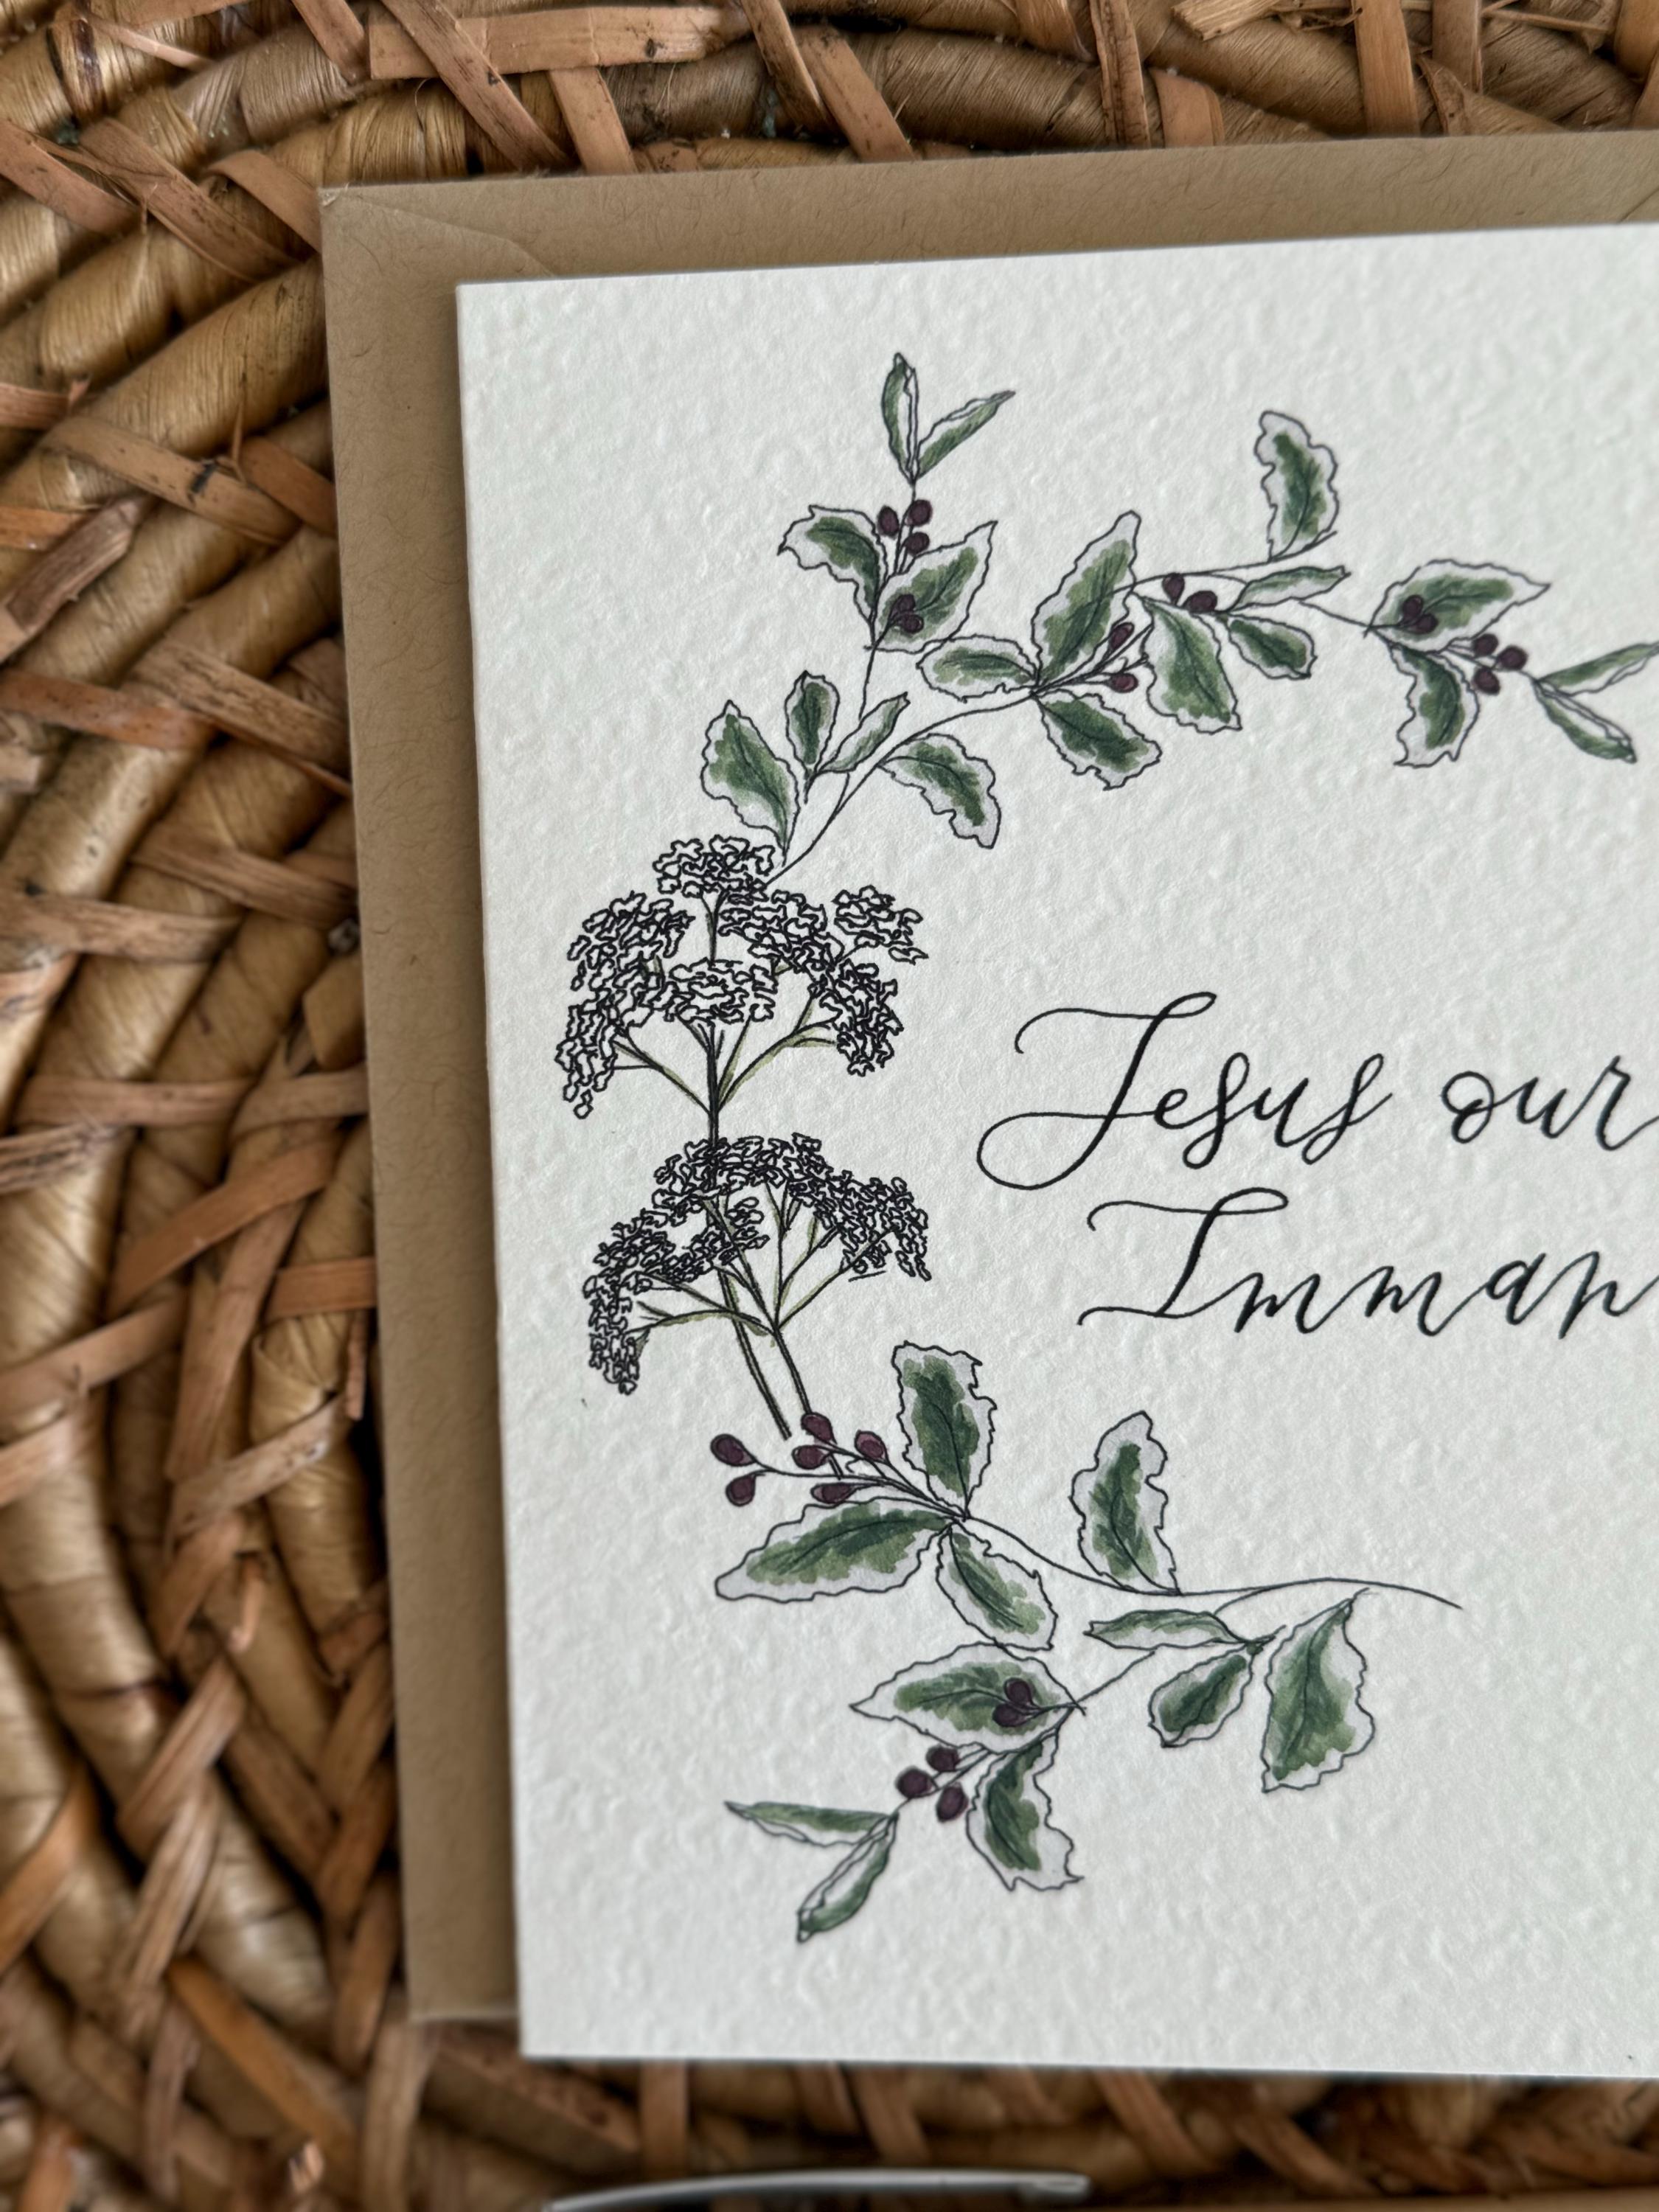 Jesus our
Imman